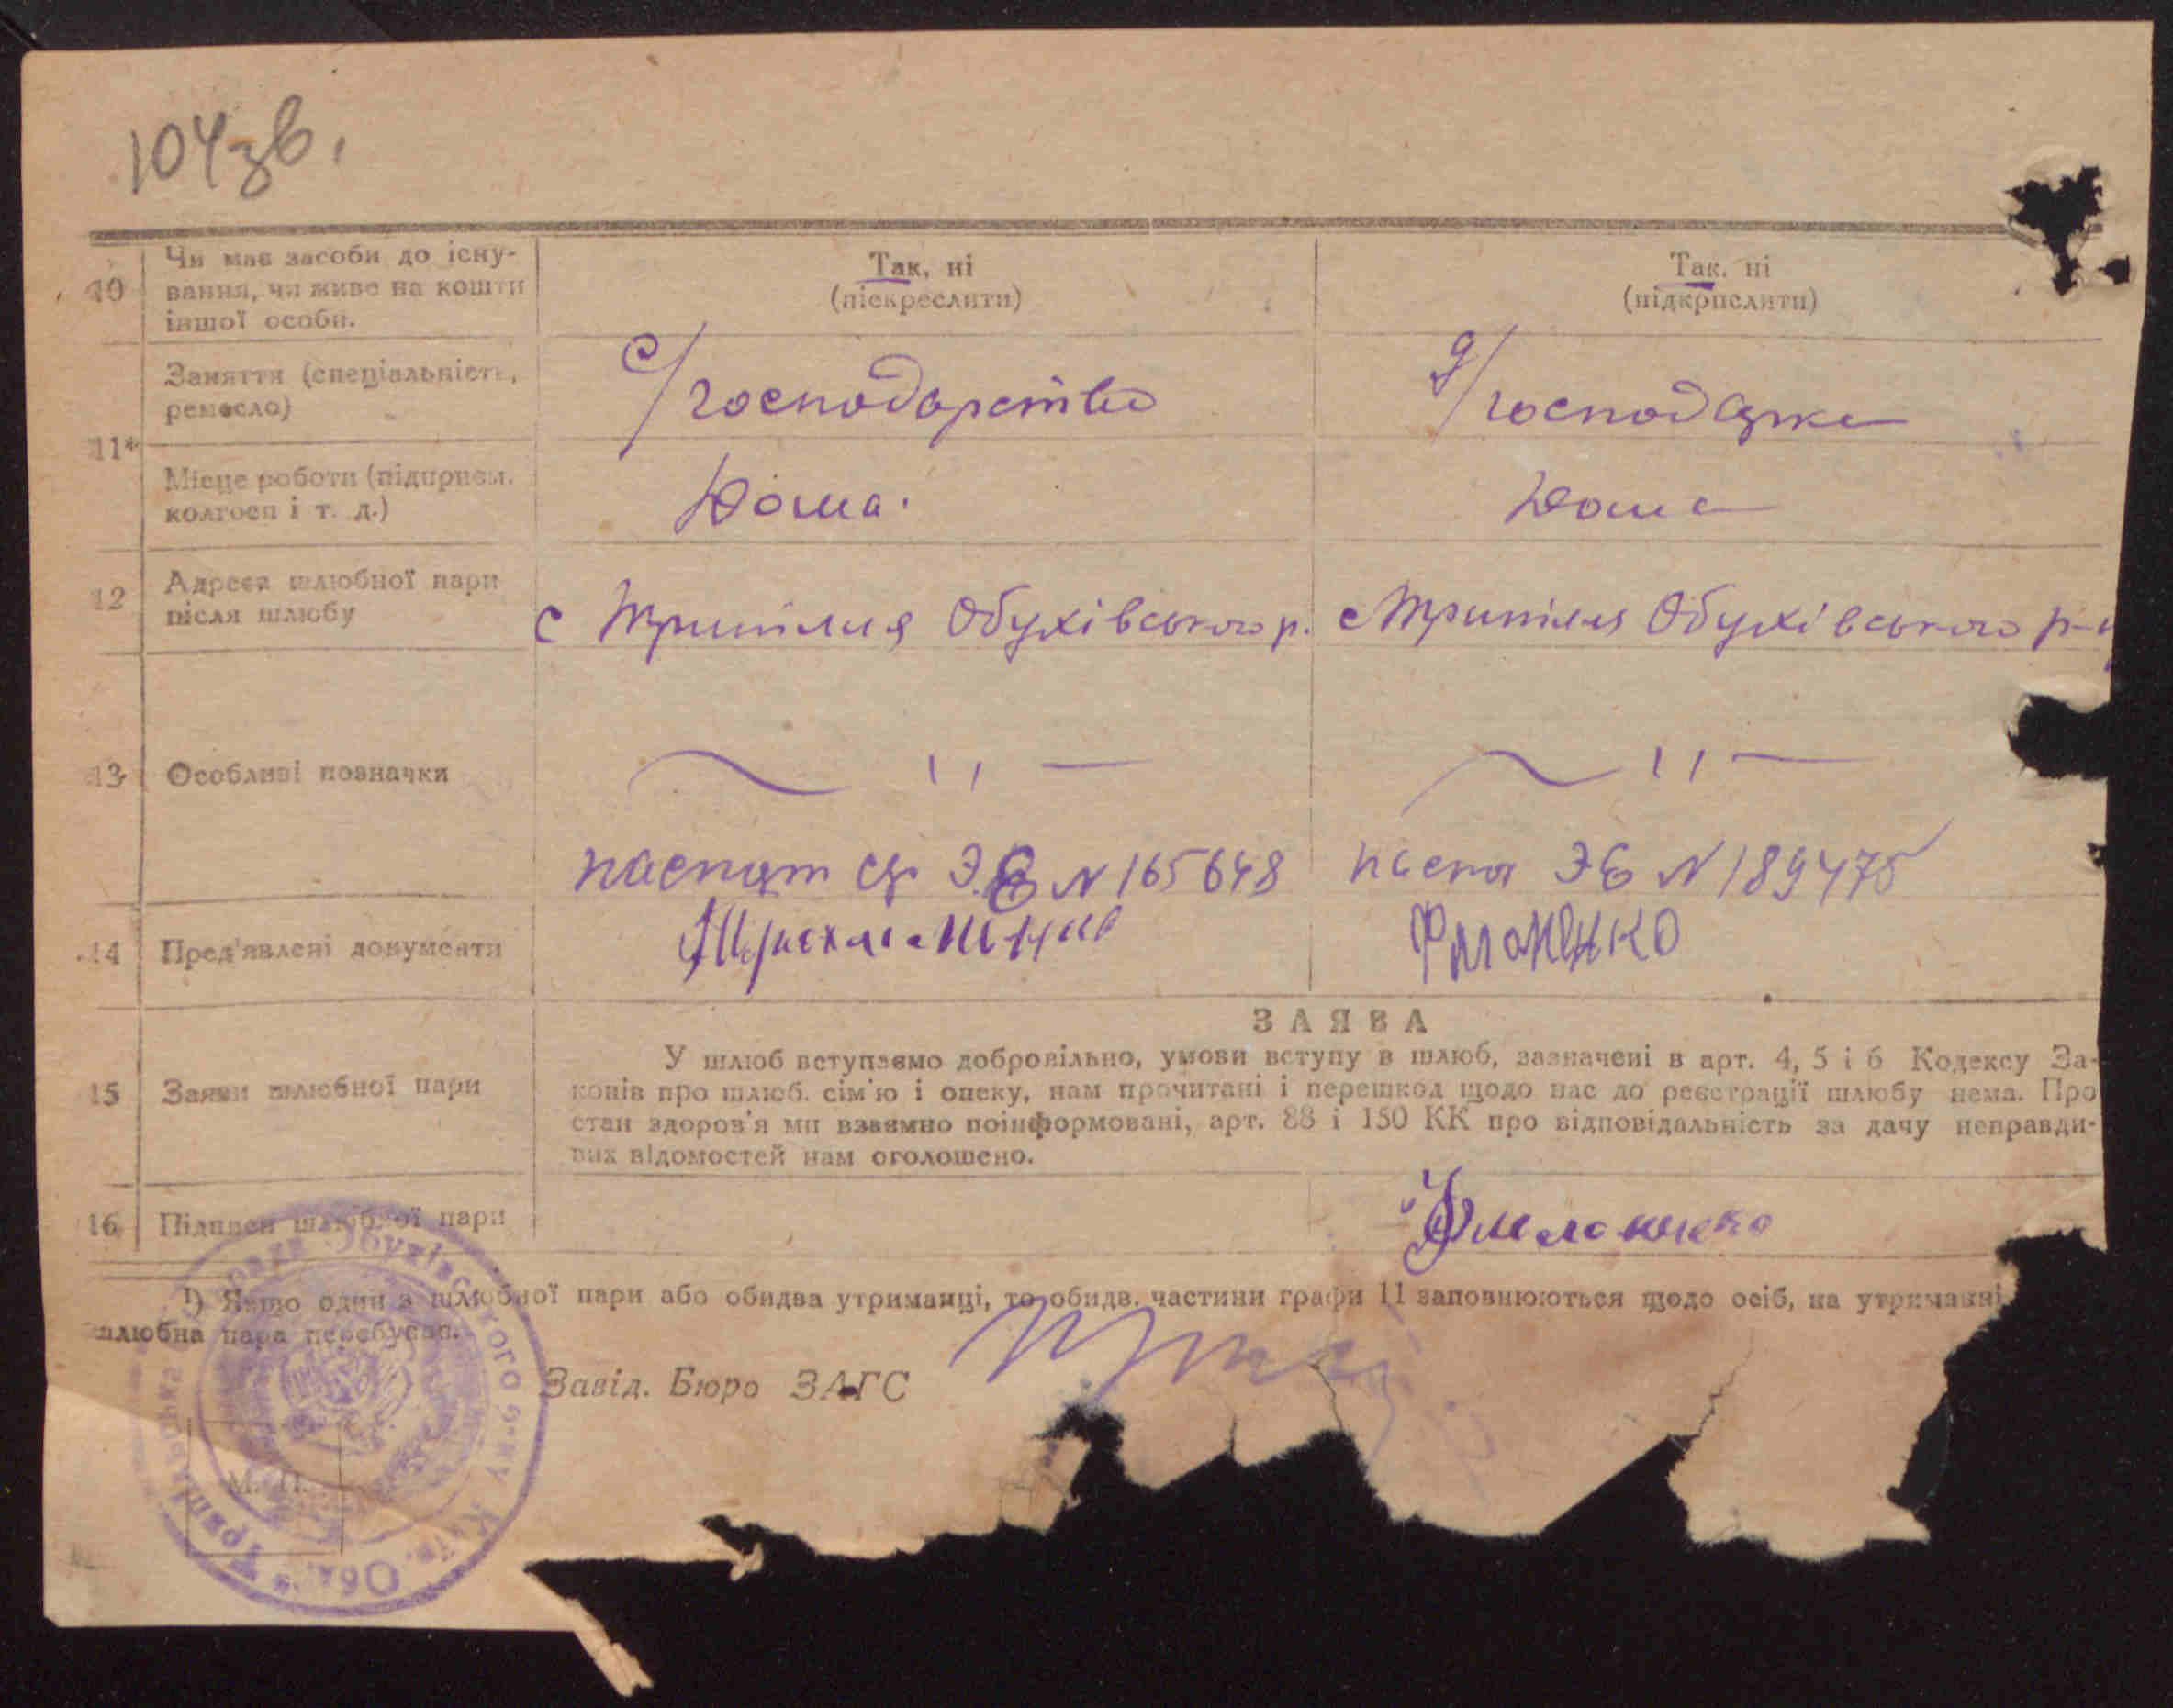 104зв.
10
Чи має засоби до існу-
вання, чи живе на кошти
іншої особи.
Так, ні
(піскреслити)
Так, ні
(підкрпслити)
11*
Заняття (спеціальність,
ремесло)
с/господарство
д/господарка
Місце роботи (підприєм.
колгосп і т. д.)
Дома.
Дома
12
Адреса шлюбної пари
після шлюбу
с Трипілля Обухівського р.
с Трипілля Обухівського р-н
13
Особливі позначки
— " —
— " —
14
Пред'явлені документи
паспорт ср ЭЕ N 165648
паспор ЭЕ N 189475
Филоненко
ЗАЯВА
15
Заяви шлюбної пари
У шлюб вступаємо добровільно, умови вступу в шлюб, зазначені в арт. 4, 5 і 6 Кодексу За-
конів про шлюб. сім'ю і опеку, нам прочитані і перешкод щодо нас до реєстрації шлюбу нема. Про
стан здоров'я ми взаємно поінформовані, арт. 88 і 150 КК про відповідальність за дачу неправди-
вих відомостей нам оголошено.
16
Підписи шлюбної пари
1) Якщо один з шлюбної пари або обидва утриманці, то обидв. частини графи 11 заповнюються щодо осіб, на утриманні
шлюбна пара перебуває.
Завід. Бюро ЗАГС
М. П.
Трипільська Обухівського р-ну Київ. Обл.